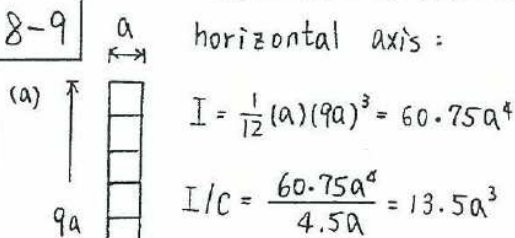 8-9
a
horizontal axis:
(a)
I = 1/12 (a)(9a)³ = 60.75a⁴
I/c = 60.75a⁴ / 4.5a = 13.5a³
9a